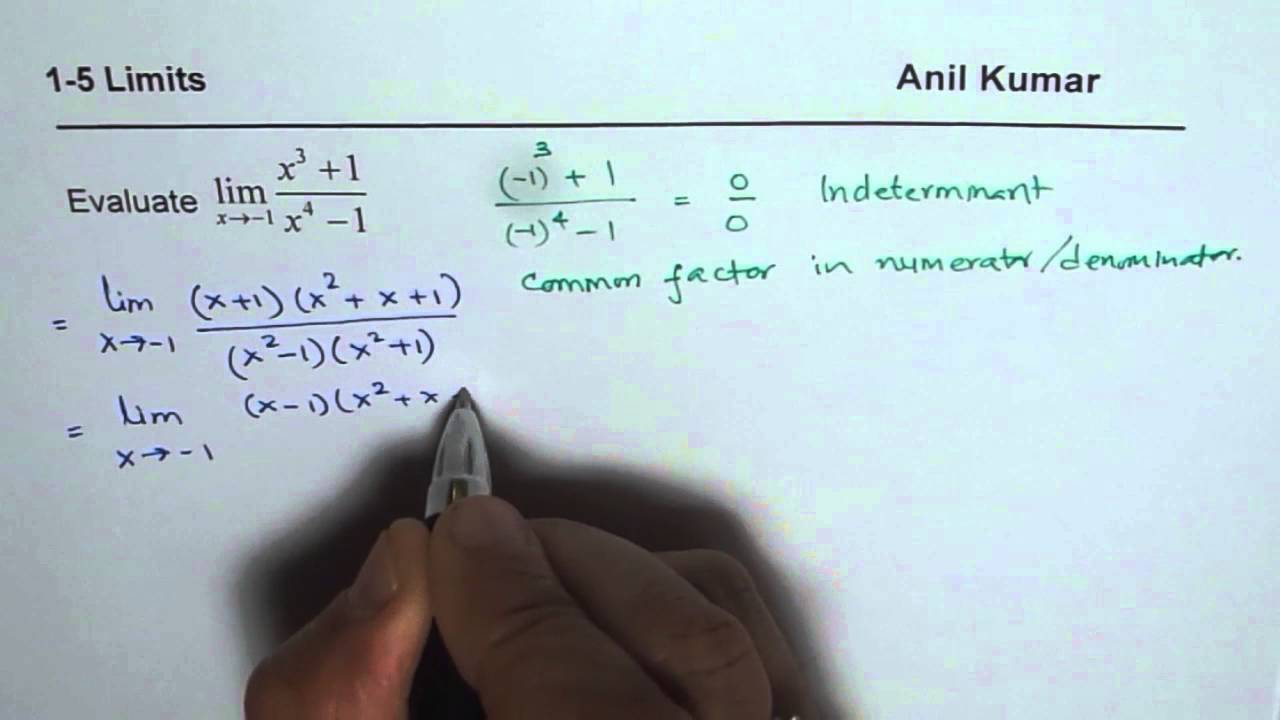 1-5 Limits Anil Kumar
Evaluate lim x→-1 (x³ + 1)/(x⁴ − 1)
((-1)³ + 1)/((-1)⁴ - 1) = 0/0 Indetermnant
Common factor in numerator/denominator.
= lim x→-1 ((x+1)(x² + x + 1))/((x²-1)(x²+1))
= lim x→-1 (x-1)(x² + x